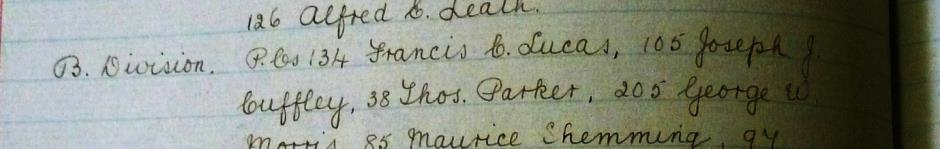 126 Alfred C. Leath.
B. Division. P.Cs 134 Francis C. Lucas, 105 Joseph J.
Cuffley, 38 Thos. Parker, 205 George W.
Morris, 85 Maurice Shemming, 94